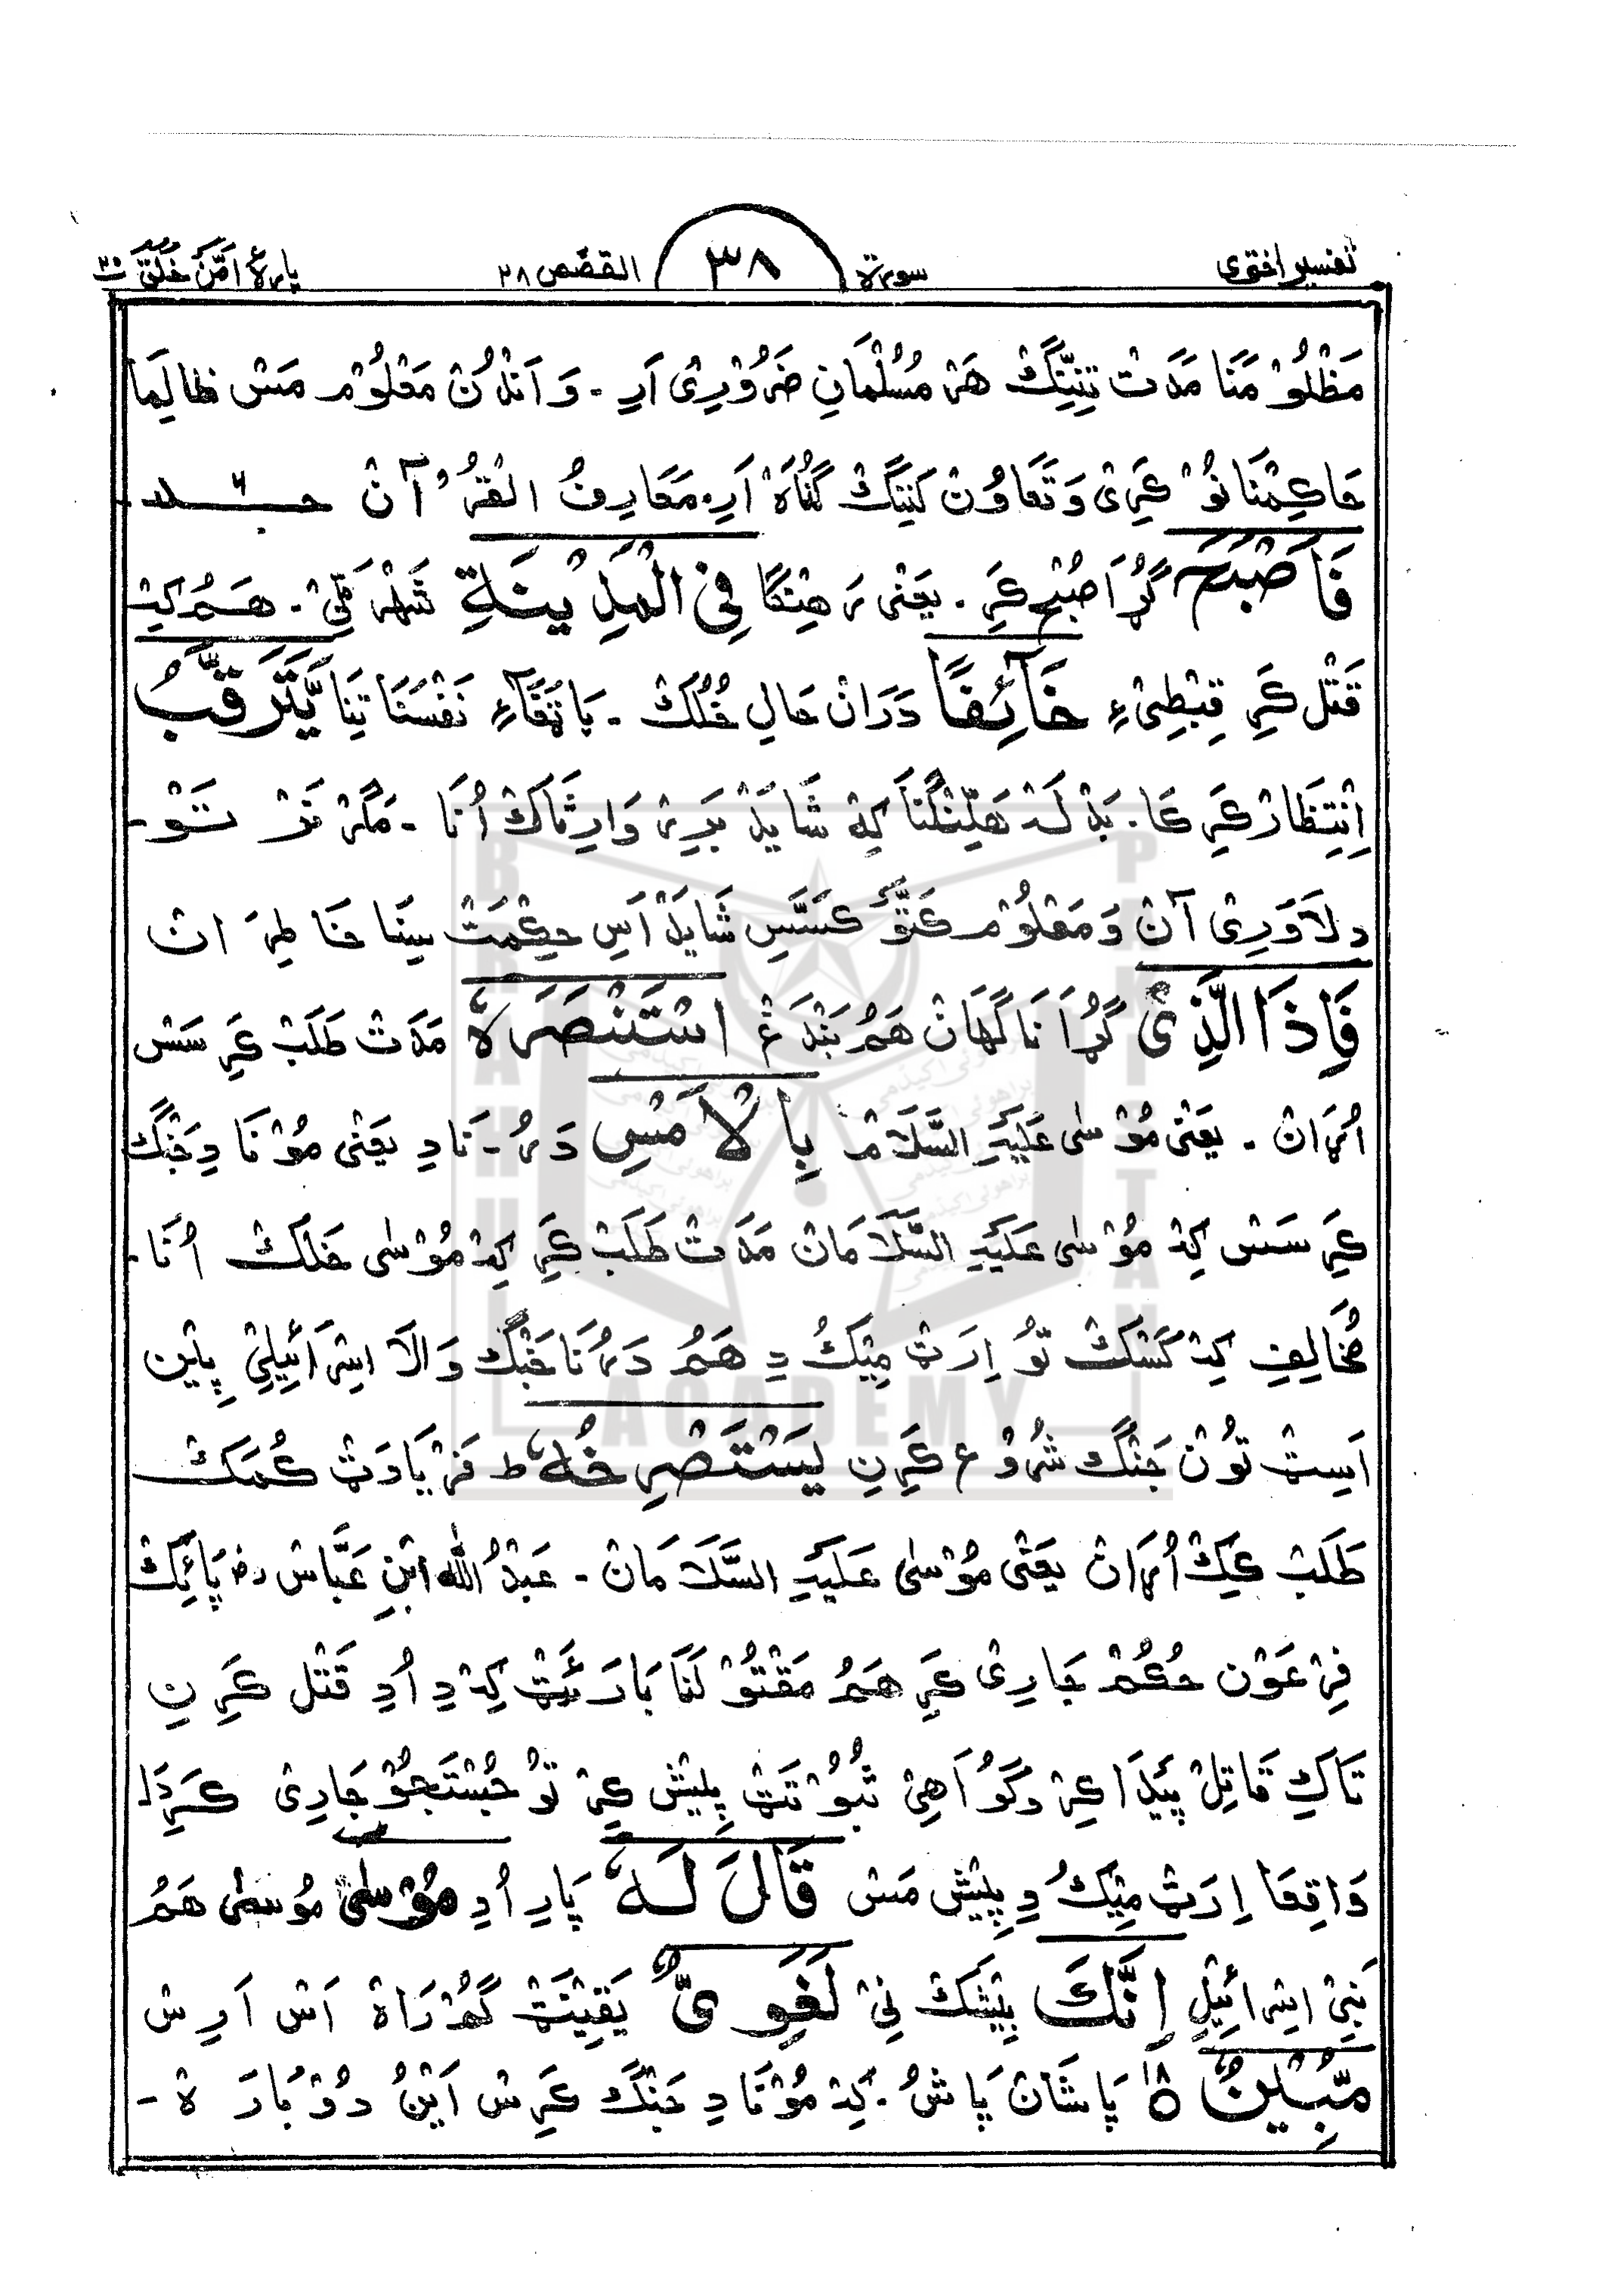 تفسیر اختری سورة ٣٨ القصص ٢٨ پارهٔ امّن خلق ٢٠
مَظْلُوْ مَنَا مَدَتْ تِنِنِّگْ هَرْ مُسُلْمَانِ ضَرُوْرِیْ اَرِ ۔ وَ اَنْدُنْ مَعْلُوْم مَسْ ظالِمَا
حَاکِمْنَا نَوْ کَرِیْ وَ تَعَاوُنْ کَنِنْگْ گُنَاہْ اَرِ۔ مَعَارِفُ الْقُرْآنْ جـلد ٦
فَاَصْبَحَ گُڑَا صُبْح کَرِ ۔ یَعْنی رَهِنْگَا فِی الْمَدِیْنَةِ شَهْرَ ٹِیْ ۔ هَمُ کِہْ
قَتْل کَرِ قِبْطِیْ ءِ خَآئِفًا دَرَانْ حَالِ خُلُکْ ۔ پَاتَقَاءِ نَفْسْنَا تِنَا یَّتَرَقَّبُ
اِنْتِظَارْ کَرِ کَا۔ بَدْلَہْ هَلِّنْگْنَا کِہْ شَایَدْ بَرِرْ وَارِثَاکْ اُنَا ۔ مَگَرْ نَنْ تَوْ۔
دِلَاوَرِیْ آنْ وَ مَعْلُوْم کَتَّوُ کَسَّسِ شَایَدْ اَسِ حِکِمَتْ سِیْنَا خَاطِرَ انْ
فَاِذَا الَّذِیْ گُڑَا نَاگَهَانْ هَمُ بَنْدَ غْ اسْتَنْصَرَہٗ مَدَتْ طَلَبْ کَرِ سَسْ
اُرَانْ ۔ یَعْنی مُوْسٰی عَلَیْہِ السَّلَامْ بِالْاَمْسِ دَرُ ۔ نَا دِ یَعْنی مُوْنَا دِ جَنْگْ
کَرِ سَسْ کِہْ مُوْسٰی عَلَیْہِ السَّلَامَانْ مَدَتْ طَلَبْ کَرِ کِہْ مُوْسٰی خَلْکْ اُنَا۔
مُخَالِفِ کِہْ کَسْکْ تَوُ اِرَتْ مِیْکُ دِ هَمُ دَرُنَا جَنْگْ وَالَا اِسْرَائِیْلِیْ پِیْن
اَسِتْ تَوْنْ جَنْگْ شُرُوْ ع کَرِنِ یَسْتَصْرِخُہٗ ط فَرْیَادَتْ کُمَکْ
طَلَبْ کِکْ اُرَانْ یَعْنی مُوْسٰی عَلَیْہِ السَّلَامَانْ ۔ عَبْدُ اللّٰہ ابْنِ عَبَّاسْ رض پَائِکْ
فِرْعَوْن حُکُمْ جَارِیْ کَرِ هَمُ مَقْتُوْلَنَا بَارَئَتْ کِہْ دِ اُدِ قَتْل کَرِ نِ
تَاکِ قَاتِلْ پَیْدَا کِرْ وَ گَوَاهِیْ ثُبُوْتَتْ پِیْش کِرْ تَوُ جُسْتَجُوْ جَارِیْ کَرِ دَا
وَاقِعَا اِرَتْ مِیْکُ دِ پِیْش مَسْ قَالَ لَہٗ پَارِ اُدِ مُوْسٰی مُوْسٰی هَمُ
بَنِیْ اِسْرَائِیْلِ اِنَّکَ بِیْشَکْ نِیْ لَغَوِیٌّ یَقِیْنَتْ گُمْرَاہْ اَسْ اَرِسْ
مُّبِیْنٌ ١٨ پَاشَانْ پَاشُ۔ کِہْ مُوْنَا دِ جَنْگْ کَرِسْ اَیْنُ دُوْبَارَ ہْ ۔
BRAHUI ACADEMY PAKISTAN